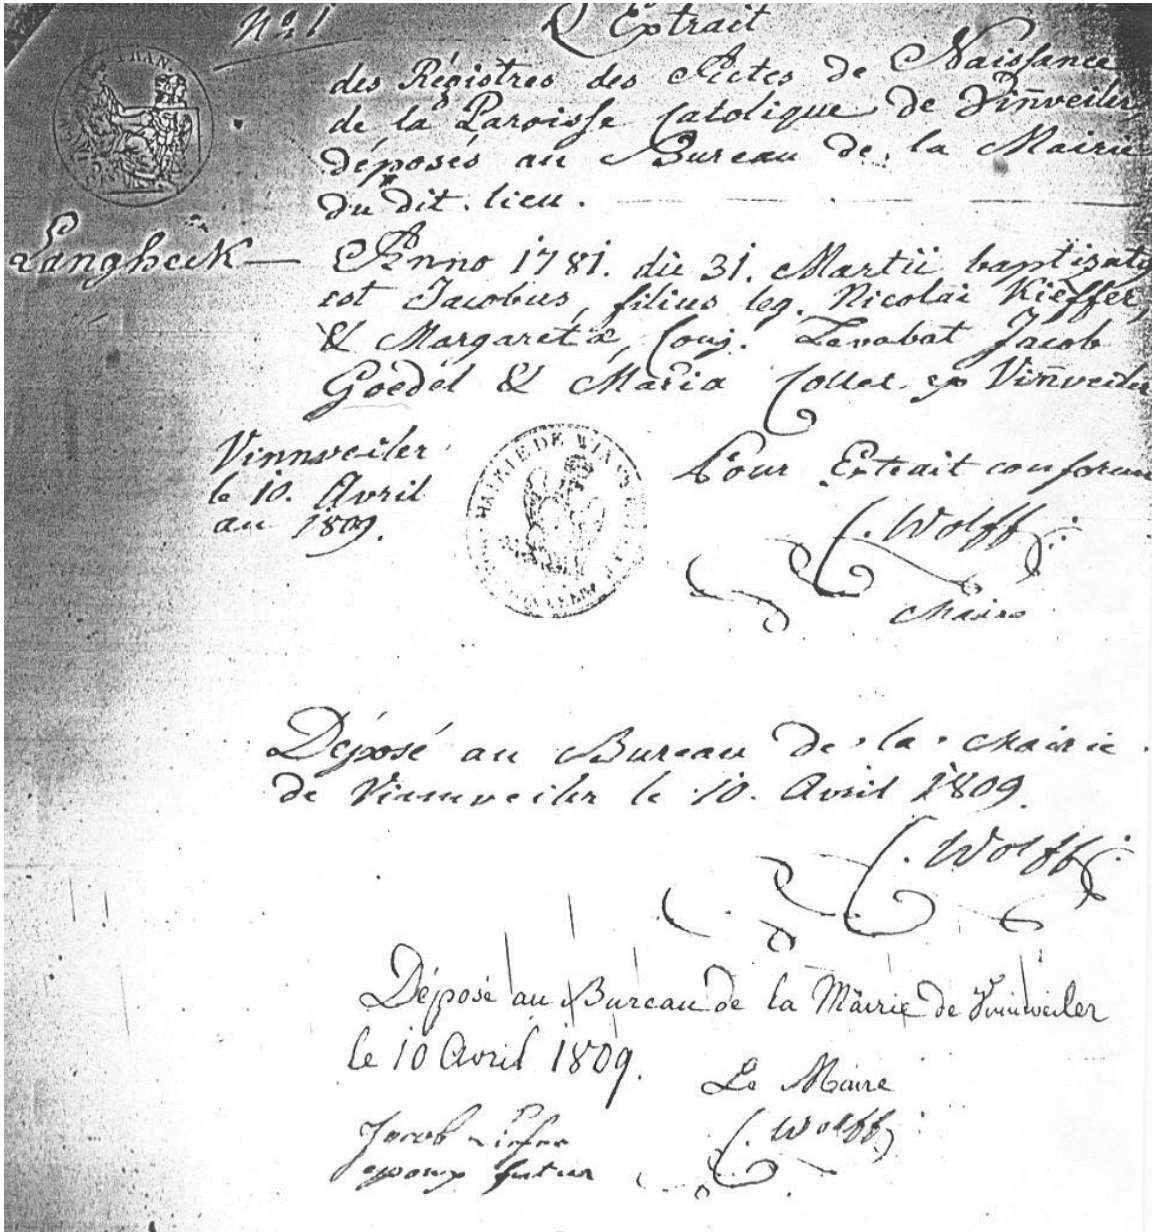 No. 1
Extrait
des Régistres des Actes de Naissance
de la Paroisse Catolique de Vin̄veiler,
déposés au Bureau de la Mairie
du dit. lieu.
Langheck — Anno 1781. die 31. Martii baptizatus
est Jacobus, filius leg. Nicolai Kieffer,
& Margaretæ, Conj. Levabat Jacob
Goedel & Maria Coller ex Vin̄veiler
Vinnweiler
le 10. Avril
an 1809.
MAIRIE DE
Pour Extrait conforme
C. Wolff
Maire
Déposé au Bureau de la Mairie
de Vinnweiler le 10. Avril 1809.
C. Wolff
Déposé au Bureau de la Mairie de Vinnweiler
le 10 Avril 1809.
Le Maire
C. Wolff
Jacob
epoux futur